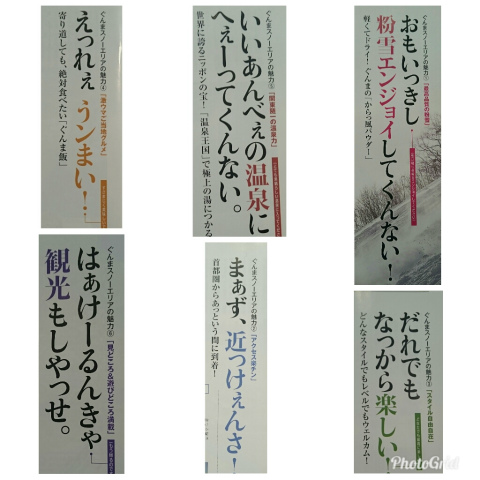 ぐんまスノーエリアの魅力①「最高品質の粉雪」
おもいっきし
粉雪エンジョイしてくんない！
軽くてドライ！ぐんまの「からっ風パウダー」
ぐんまスノーエリアの魅力②「アクセス楽チン」
まぁず、近っけぇんさ！
首都圏からあっという間に到着！
ぐんまスノーエリアの魅力③「スタイル自由自在」
だれでも
なっから楽しい！
どんなスタイルでもレベルでもウェルカム！
ぐんまスノーエリアの魅力④「激ウマご当地グルメ」
えっれぇ うンまい！
寄り道しても、絶対食べたい「ぐんま飯」
ぐんまスノーエリアの魅力⑤「関東随一の温泉力」
いいあんべぇの温泉に
へぇーってくんない。
世界に誇るニッポンの宝！「温泉王国」で極上の湯につかる
ぐんまスノーエリアの魅力⑥「見どころ&遊びどころ満載」
はぁけーるんきゃ
観光もしやっせ。
PhotoGrid